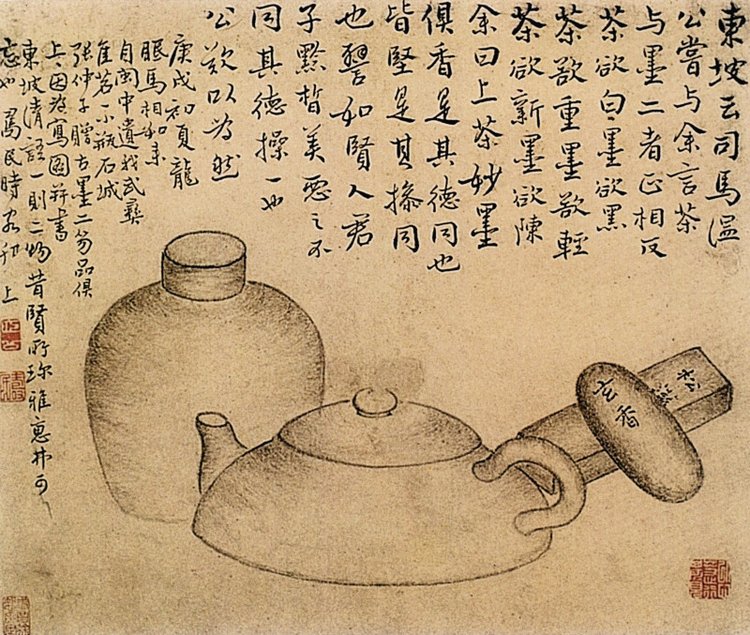 東坡云司馬溫
公嘗与余言茶
与墨二者正相反
茶欲白墨欲黑
茶欲重墨欲輕
茶欲新墨欲陳
余曰上茶妙墨
俱香是其德同也
皆堅是其操同
也譬如賢人君
子黔皙美惡之不
同其德操一也
公歎以為然
庚戌初夏龍
眠馬相如来
自閩中遺我武彝
佳茗一小瓶石城
張仲子贈古墨二笏品俱
上〻因為寫圖并書
東坡清語一則二物昔賢所珍雅惠弗可
忘也 民時客邗上
玄香